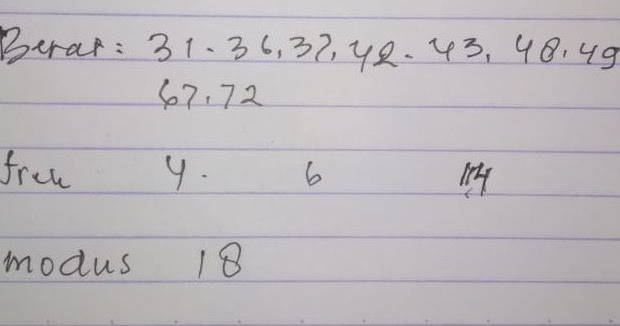 Berat: 31. 36, 37, 42. 43, 48. 49
67.72
frek 4. 6 14
modus 18